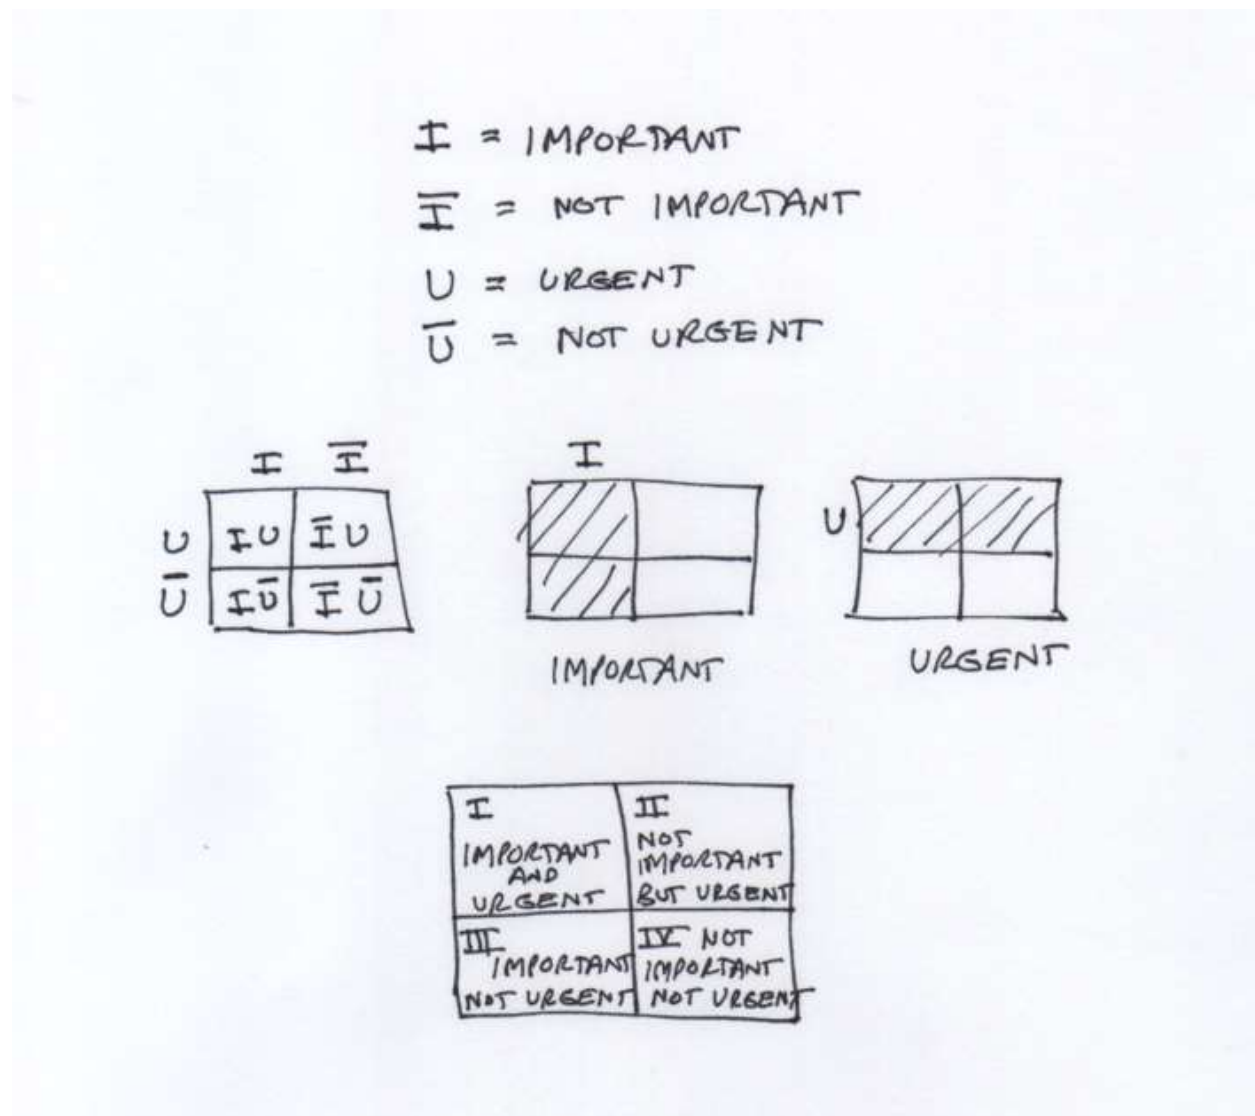 I = IMPORTANT
I̅ = NOT IMPORTANT
U = URGENT
U̅ = NOT URGENT
I I̅
U IU I̅U
U̅ IU̅ I̅ U̅
I
IMPORTANT
U
URGENT
I
IMPORTANT
AND
URGENT
II
NOT
IMPORTANT
BUT URGENT
III
IMPORTANT
NOT URGENT
IV NOT
IMPORTANT
NOT URGENT